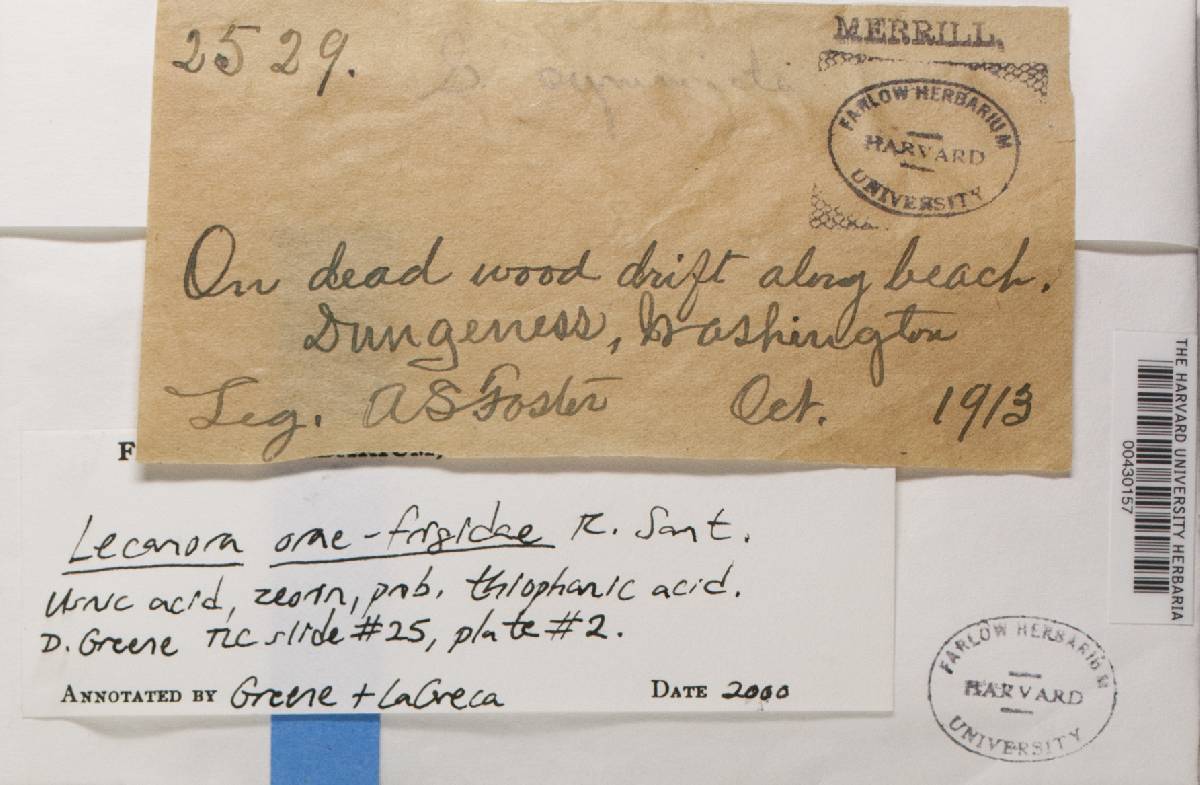 2529.
MERRILL,
FARLOW HERBARIUM
HARVARD
UNIVERSITY
On dead wood drift along beach.
Dungeness, Washington
Leg. AS Foster Oct. 1913
Lecanora orae-frigidae R. Sant.
Usnic acid, zeorin, prob. thiophanic acid.
D. Greene TLC slide #25, plate #2.
ANNOTATED BY Greene + LaGreca DATE 2000
THE HARVARD UNIVERSITY HERBARIA
00430157
FARLOW HERBARIUM
HARVARD
UNIVERSITY